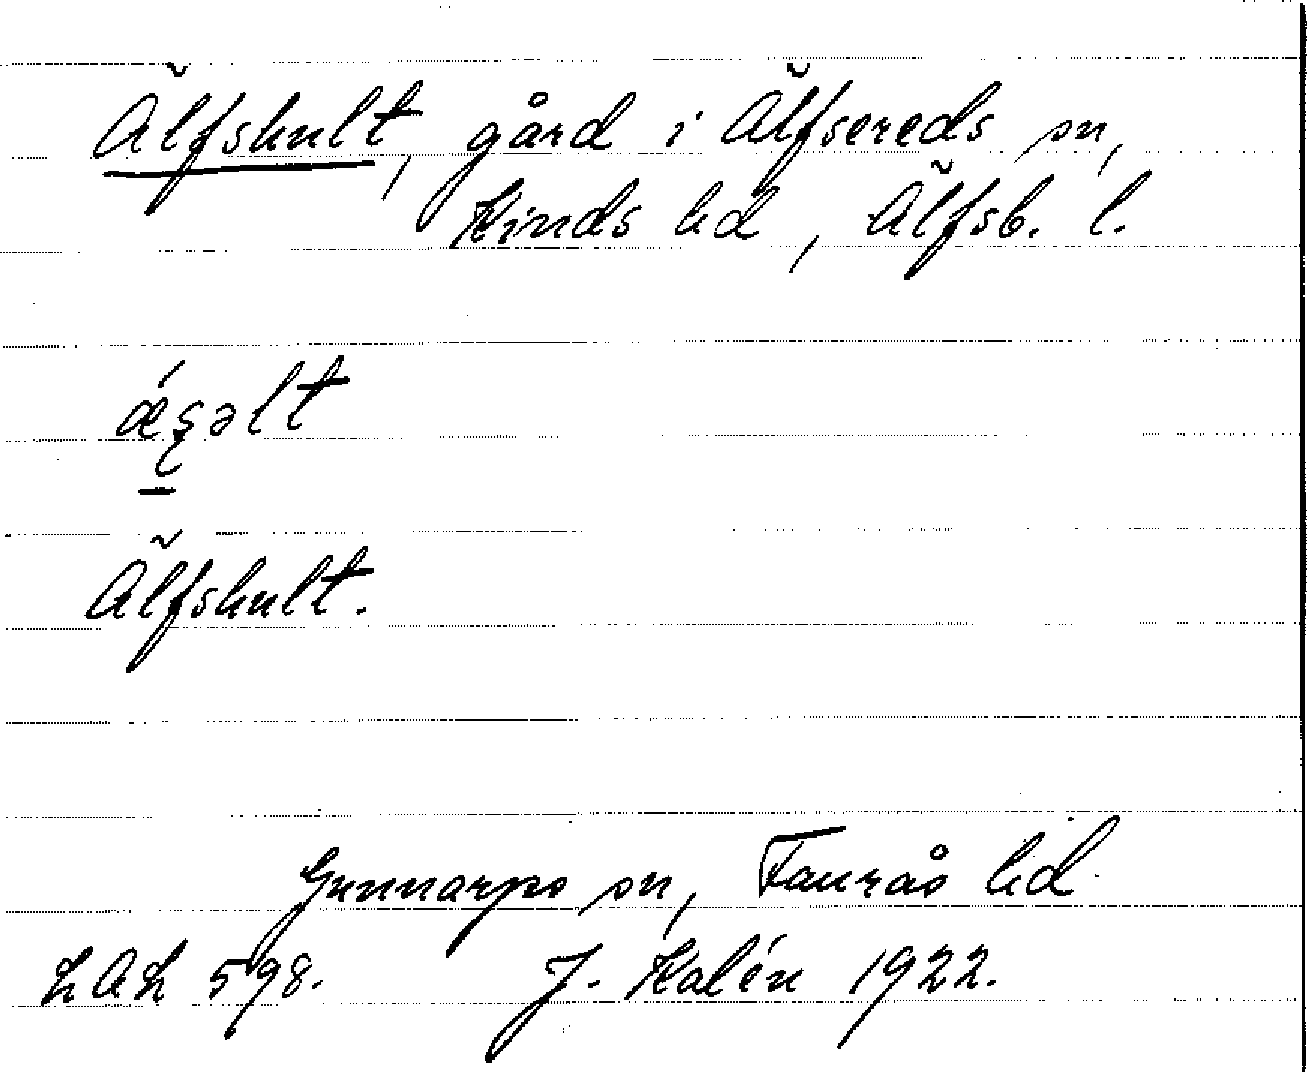 Älfshult, gård i Älfsereds sn,
Kinds hd, Älfsb. l.
ǽşəlt
Älfshult.
Gunnarps sn, Faurås hd.
LAL 598. J. Kalén 1922.